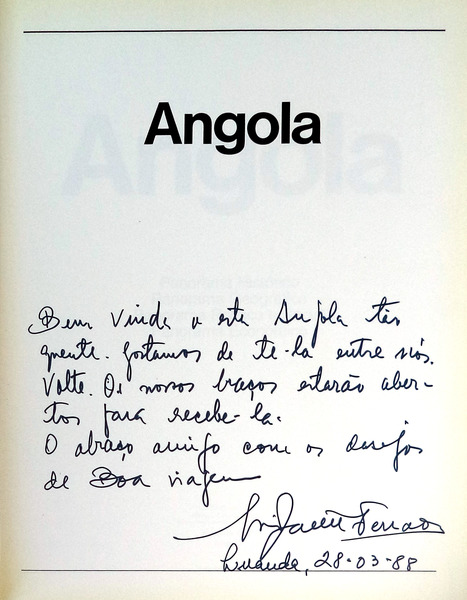 Angola
Bem Vinda a esta Angola tão
quente. Gostamos de te-la entre nós.
Volte. Os nossos braços estarão aber-
tos para recebe-la.
O abraço amigo com os desejos
de Boa viagem
Ferrão
Luanda, 28-03-88